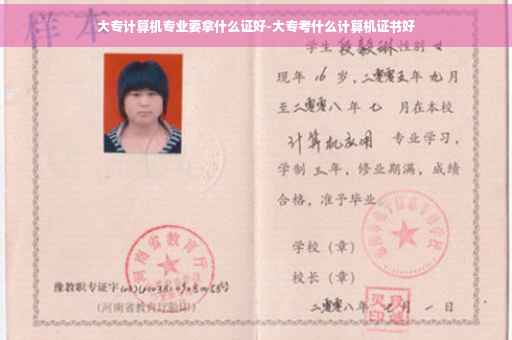 样本
大专计算机专业要拿什么证好-大专考什么计算机证书好
学生 段毅琳 性别 女
现年 16 岁，二零零五年 九 月
至二零零八年 七 月在本校
计算机应用 专业学习，
学制 三 年，修业期满，成绩
合格，准予毕业。
学校（章）
校长（章）
二零零八年 七 月 一 日
河南省教育厅
豫教职专证字
(河南省教育厅验印)